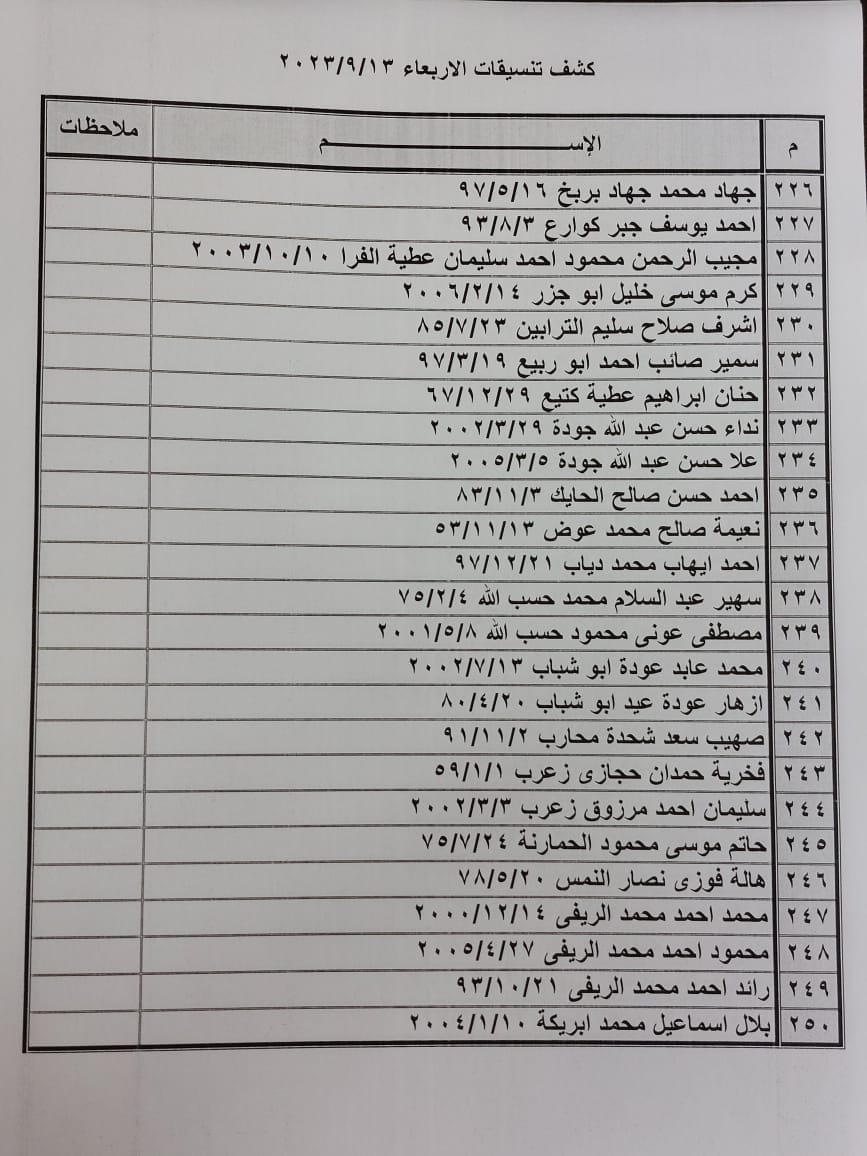 كشف تنسيقات الاربعاء ٢٠٢٣/٩/١٣
م الإســـــم ملاحظات
٢٢٦ جهاد محمد جهاد بربخ ٩٧/٥/١٦
٢٢٧ احمد يوسف جبر كوارع ٩٣/٨/٣
٢٢٨ مجيب الرحمن محمود احمد سليمان عطية الفرا ٢٠٠٣/١٠/١٠
٢٢٩ كرم موسى خليل ابو جزر ٢٠٠٦/٢/١٤
٢٣٠ اشرف صلاح سليم الترابين ٨٥/٧/٢٣
٢٣١ سمير صائب احمد ابو ربيع ٩٧/٣/١٩
٢٣٢ حنان ابراهيم عطية كتيع ٦٧/١٢/٢٩
٢٣٣ نداء حسن عبد الله جودة ٢٠٠٢/٣/٢٩
٢٣٤ علا حسن عبد الله جودة ٢٠٠٥/٣/٥
٢٣٥ احمد حسن صالح الحايك ٨٣/١١/٣
٢٣٦ نعيمة صالح محمد عوض ٥٣/١١/١٣
٢٣٧ احمد ايهاب محمد دياب ٩٧/١٢/٢١
٢٣٨ سهير عبد السلام محمد حسب الله ٧٥/٢/٤
٢٣٩ مصطفى عونى محمود حسب الله ٢٠٠١/٥/٨
٢٤٠ محمد عابد عودة ابو شباب ٢٠٠٢/٧/١٣
٢٤١ ازهار عودة عيد ابو شباب ٨٠/٤/٢٠
٢٤٢ صهيب سعد شحدة محارب ٩١/١١/٢
٢٤٣ فخرية حمدان حجازى زعرب ٥٩/١/١
٢٤٤ سليمان احمد مرزوق زعرب ٢٠٠٢/٣/٣
٢٤٥ حاتم موسى محمود الحمارنة ٧٥/٧/٢٤
٢٤٦ هالة فوزى نصار النمس ٧٨/٥/٢٠
٢٤٧ محمد احمد محمد الريفى ٢٠٠٠/١٢/١٤
٢٤٨ محمود احمد محمد الريفى ٢٠٠٥/٤/٢٧
٢٤٩ رائد احمد محمد الريفى ٩٣/١٠/٢١
٢٥٠ بلال اسماعيل محمد ابريكة ٢٠٠٤/١/١٠